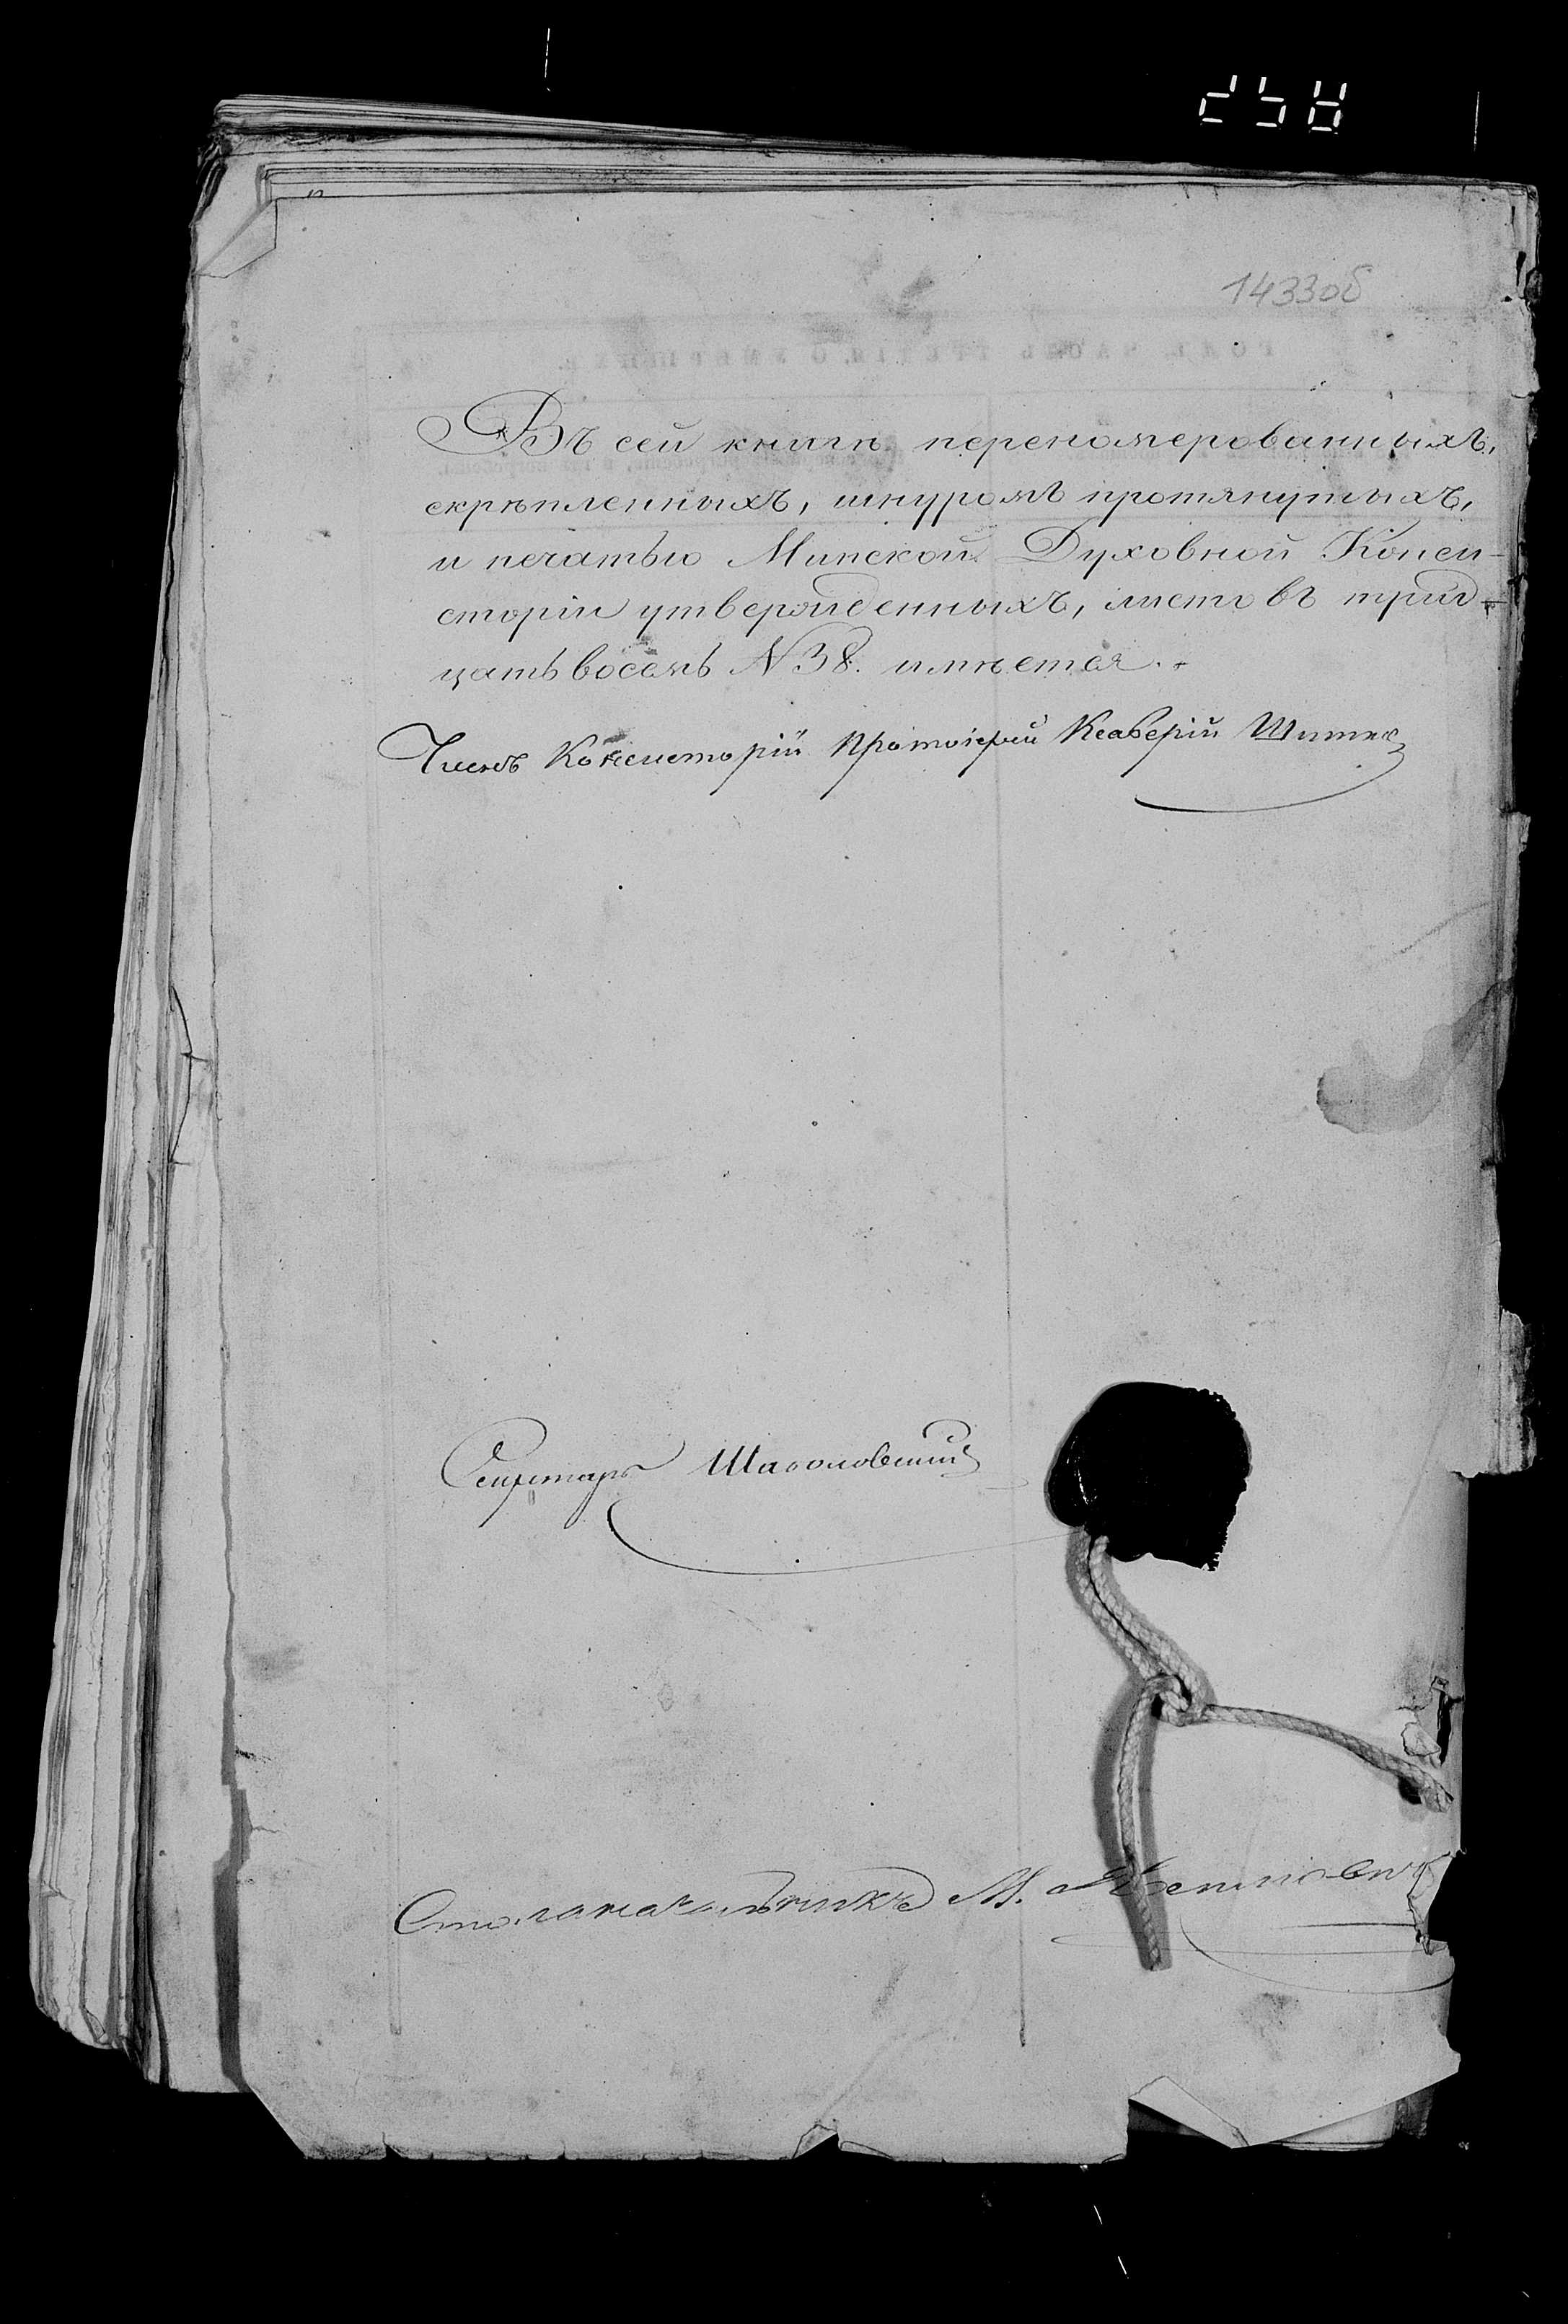 258
1433об
Въ сей книгѣ перенομерованныхъ,
скрѣпленныхъ, шнуромъ протянутыхъ,
и печатью Минской Духовной Конси-
сторіи утвержденныхъ, листовъ трид-
цать восемь №38. имѣется.
Членъ Консисторіи Протоіерей Ксаверій
Секретарь
Столоначальникъ М.